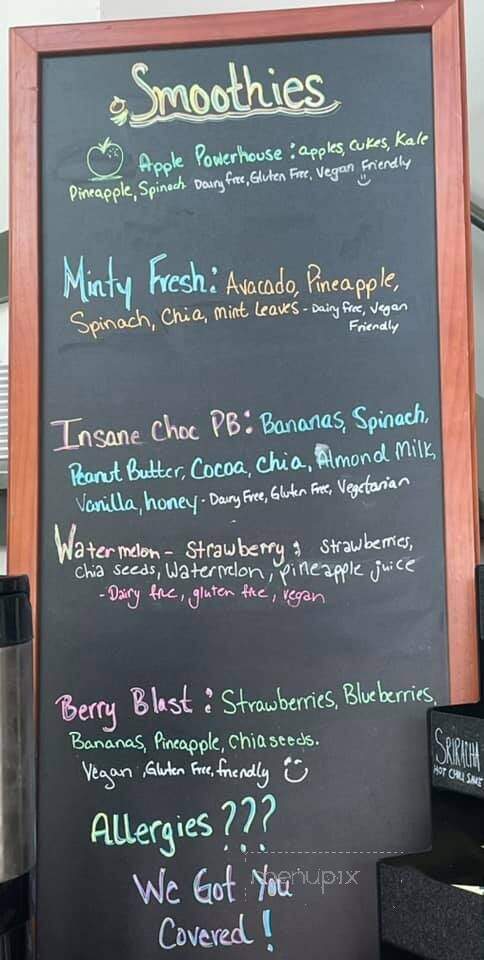 Smoothies
Apple Powerhouse : apples, cukes, Kale
Pineapple, Spinach Dairy free, Gluten Free, Vegan Friendly
Minty Fresh: Avacado, Pineapple,
Spinach, Chia, mint leaves - Dairy free, Vegan
Friendly
Insane Choc PB: Bananas, Spinach,
Peanut Butter, Cocoa, chia, Almond Milk,
Vanilla, honey - Dairy Free, Gluten Free, Vegetarian
Watermelon - Strawberry : Strawberries,
chia seeds, Watermelon, pineapple juice
- Dairy free, gluten free, vegan
Berry Blast : Strawberries, Blueberries,
Bananas, Pineapple, chia seeds.
Vegan, Gluten Free, friendly
SRIRACHA
HOT CHILI SAUCE
Allergies ???
We Got You
menupix
Covered !